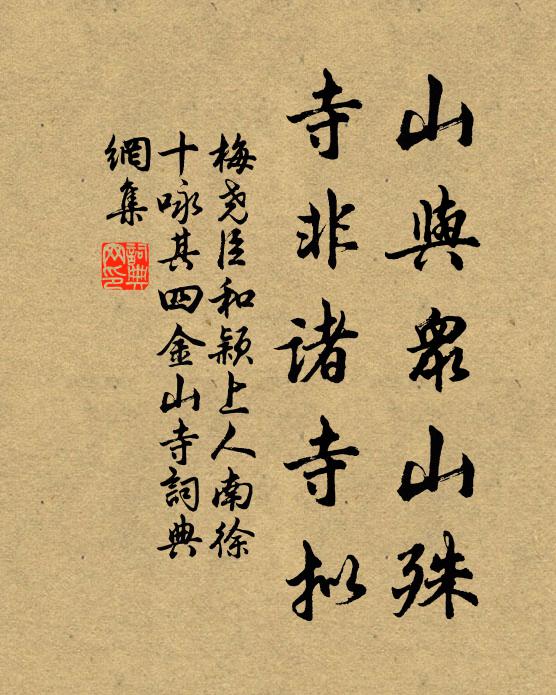 山與眾山殊
寺非諸寺拟
梅堯臣和穎上人南徐
十咏其四金山寺詞典
網集
詞典
网印